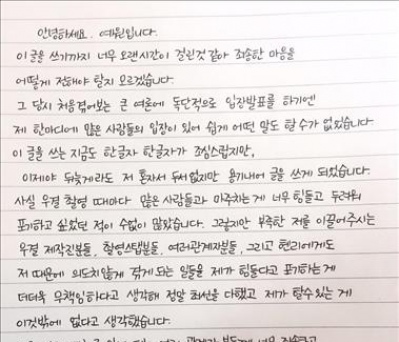 안녕하세요. 예원입니다.
이 글을 쓰기까지 너무 오랜시간이 걸린것 같아 죄송한 마음을
어떻게 전해야 할지 모르겠습니다.
그 당시 처음겪어보는 큰 여론에 독단적으로 입장발표를 하기엔
제 한마디에 많은 사람들의 입장이 있어 쉽게 어떤 말도 할 수가 없었습니다
이 글을 쓰는 지금도 한글자 한글자가 조심스럽지만,
이제야 뒤늦게라도 저 혼자서 두서없지만 용기내어 글을 쓰게 되었습니다.
사실 우결 촬영 때마다 많은 사람들과 마주치는 게 너무 힘들고 두려워
포기하고 싶었던 적이 수없이 많았습니다. 그렇지만 부족한 저를 이끌어주시는
우결 제작진분들, 촬영스탭분들, 여러관계자분들, 그리고 헨리에게도
저 때문에 의도치않게 겪게 되는 일들을 제가 힘들다고 포기하는 게
더더욱 무책임하다고 생각해 정말 최선을 다했고 제가 할 수 있는 게
이것밖에 없다고 생각했습니다.